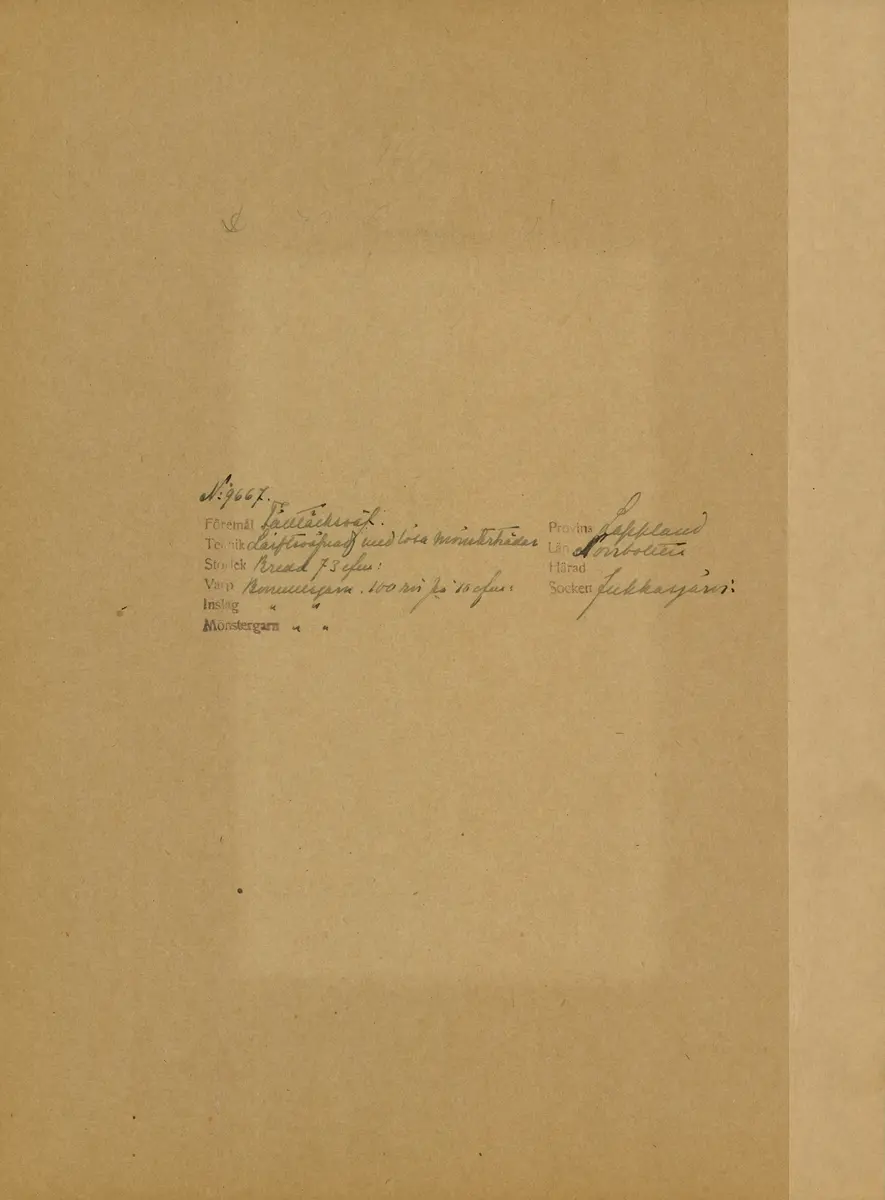 N: 9667.
Föremål Täcktäcksväf.
Teknik Skaftväfnad med lösa mönstertrådar
Storlek Bredd 73 c/m:
Varp Bomullsgarn. 100 rör på 10 c/m:
Inslag " "
Mönstergarn " "
Provins Lappland
Län Norrbotten
Härad
Socken Jukkasjärvi: